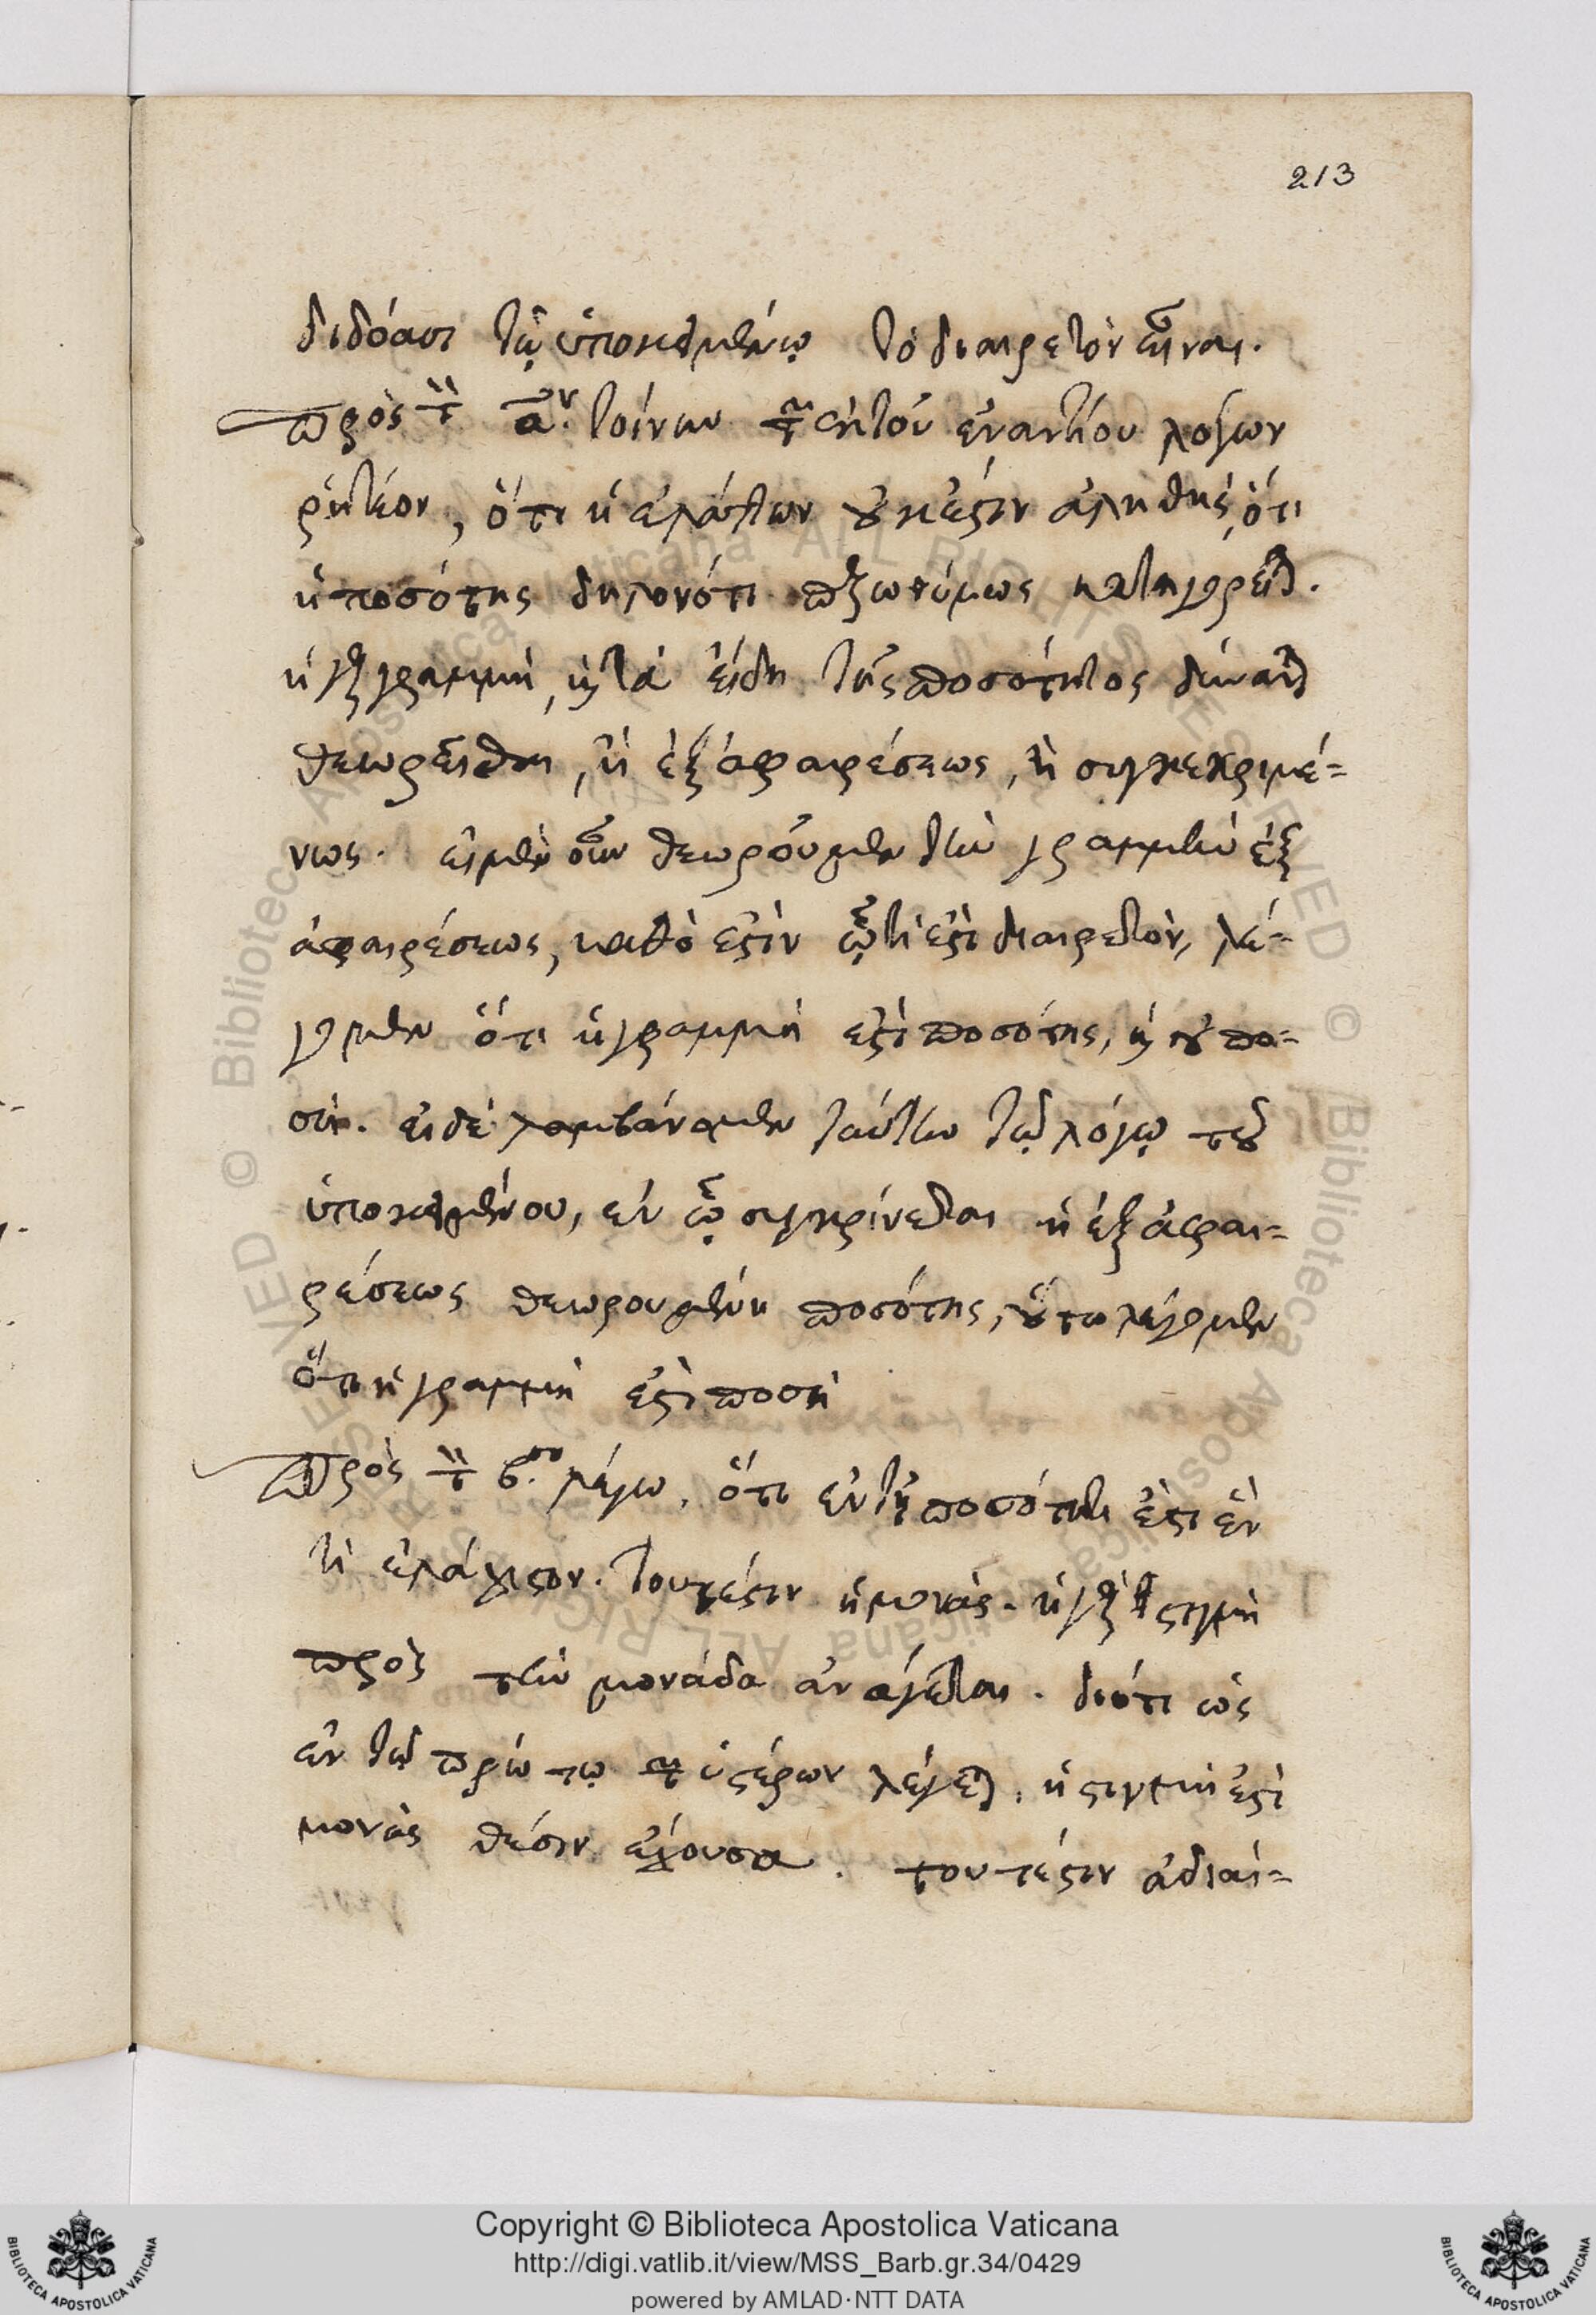 213
διδόασι τῷ ὑποκειμένῳ τὸ διαιρετὸν εἶναι.
πρὸς τὸν αον. τοίνυν τῶν ἐκ τοῦ ἐναντίου λόγων
ῥητέον, ὅτι ἡ ἐλάττων οὐκ ἔστιν ἀληθής, ὅτι
ἡ ποσότης δηλονότι παρωνύμως κατηγορεῖται.
ἡ γὰρ γραμμή, καὶ τὰ εἴδη τῆς ποσότητος δύναται
θεωρεῖσθαι, ἢ ἐξ ἀφαιρέσεως, ἢ συγκεκριμέ=
νως. εἰ μὲν οὖν θεωροῦμεν τὴν γραμμὴν ἐξ
ἀφαιρέσεως, καθό ἐστιν ᾧ τί ἐστι διαιρετὸν, λέ=
γομεν ὅτι ἡ γραμμή ἐστι ποσότης, καὶ οὐ πο=
σή. εἰ δὲ λαμβάνομεν ταύτην τῷ λόγῳ τοῦ
ὑποκειμένου, ἐν ᾧ συγκρίνεται ἡ ἐξ ἀφαι=
ρέσεως θεωρουμένη ποσότης, οὕτω λέγομεν
ὅτι ἡ γραμμή ἐστι ποσή
πρὸς τὸ βον. λέγω, ὅτι ἐν τῇ ποσότητι ἔστι ἕν
τι ἐλάχιστον. τουτέστιν ἡ μονάς. ἡ γὰρ στιγμὴ
πρὸς τὴν μονάδα ἀνάγεται. διότι ὡς
ἐν τῷ πρώτῳ τῶν ὑστέρων λέγεται, ἡ στιγμή ἐστι
μονὰς θέσιν ἔχουσα. τουτέστιν ἀδιαί=
Copyright © Biblioteca Apostolica Vaticana
http://digi.vatlib.it/view/MSS_Barb.gr.34/0429
powered by AMLAD·NTT DATA